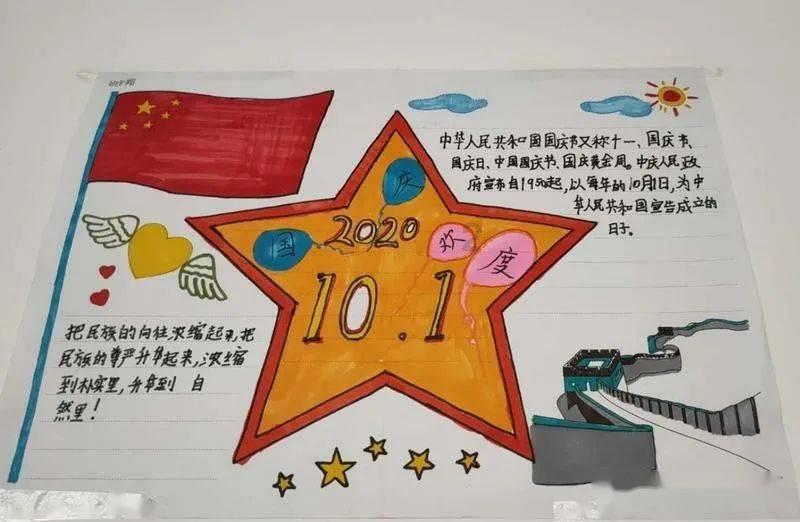 国
庆
欢
度
2020
10.1
中华人民共和国国庆节又称十一、国庆节、
国庆日、中国国庆节、国庆黄金周。中庆人民政
府宣布自1950起,以每年的10月1日,为中
华人民共和国宣告成立的
日子。
把民族的向往浓缩起来,把
民族的尊严升华起来,浓缩
到朴实里,升华到 自
然里!